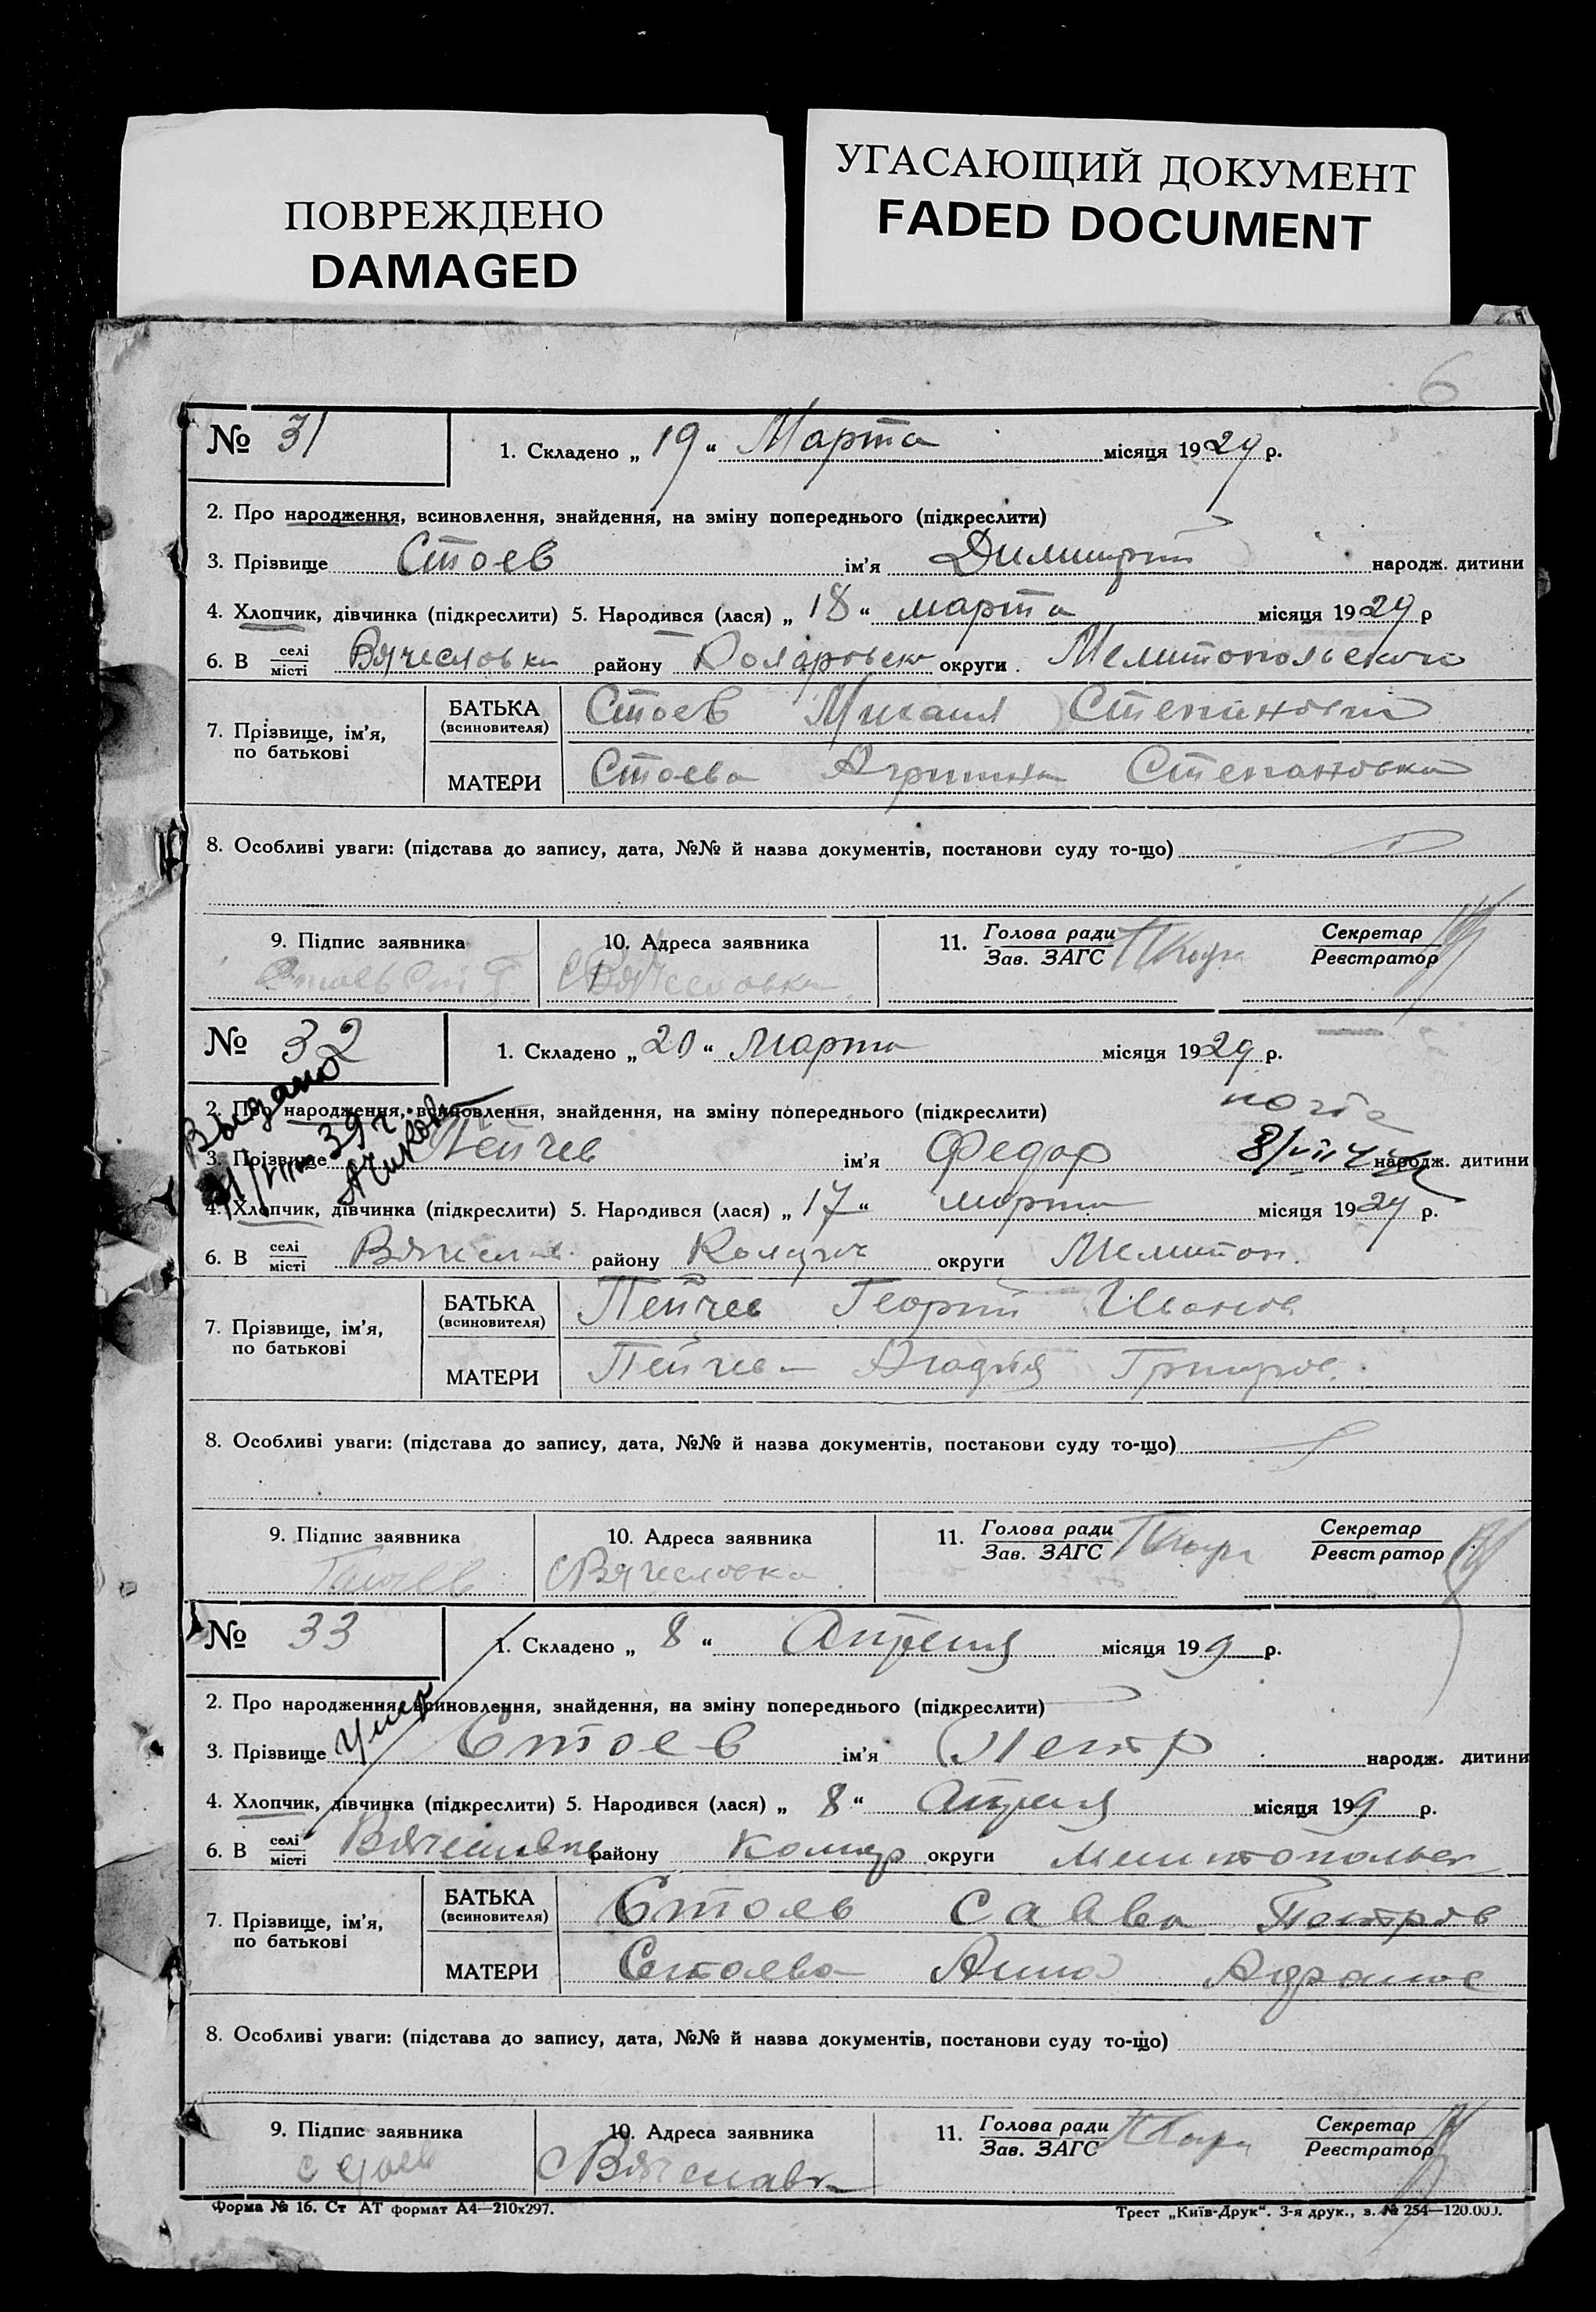 ПОВРЕЖДЕНО
DAMAGED
УГАСАЮЩИЙ ДОКУМЕНТ
FADED DOCUMENT
6
№ 31
1. Складено „ 19 “ Марта місяця 1929 р.
2. Про народження, всиновлення, знайдення, на зміну попереднього (підкреслити)
3. Прізвище Стоев ім’я Димитрий народж. дитини
4. Хлопчик, дівчинка (підкреслити) 5. Народився (лася) „ 18 “ марта місяця 1929 р
6. В селі/місті Вячесловка району округи Мелитопольского
7. Прізвище, ім’я, по батькові
БАТЬКА (всиновителя) Стоев Михаил Степанович
МАТЕРИ Стоева Агрипина Степановна
8. Особливі уваги: (підстава до запису, дата, №№ й назва документів, постанови суду то-що)
9. Підпис заявника
10. Адреса заявника с Вячесловка
11. Голова ради/Зав. ЗАГС
Секретар/Реєстратор
№ 32
1. Складено „ 20 “ марта місяця 1929 р.
Выдано
2. Про народження, всиновлення, знайдення, на зміну попереднього (підкреслити)
3. Прізвище Пейчев ім’я Федор народж. дитини
4. Хлопчик, дівчинка (підкреслити) 5. Народився (лася) „ 17 “ марта місяця 1929 р.
6. В селі/місті району округи Мелитоп.
7. Прізвище, ім’я, по батькові
БАТЬКА (всиновителя) Пейчев Георгий Иванов
МАТЕРИ Пейчева Григоров.
8. Особливі уваги: (підстава до запису, дата, №№ й назва документів, постанови суду то-що)
9. Підпис заявника
10. Адреса заявника с Вячесловка
11. Голова ради/Зав. ЗАГС
Секретар/Реєстратор
№ 33
1. Складено „ 8 “ Апреля місяця 199 р.
2. Про народження, всиновлення, знайдення, на зміну попереднього (підкреслити)
3. Прізвище Стоев ім’я Петр народж. дитини
4. Хлопчик, дівчинка (підкреслити) 5. Народився (лася) „ 8 “ Апреля місяця 199 р.
6. В селі/місті району округи
7. Прізвище, ім’я, по батькові
БАТЬКА (всиновителя) Стоев Савва Петров
МАТЕРИ Стоева Анна
8. Особливі уваги: (підстава до запису, дата, №№ й назва документів, постанови суду то-що)
9. Підпис заявника
10. Адреса заявника
11. Голова ради/Зав. ЗАГС
Секретар/Реєстратор
Форма № 16. Ст АТ формат А4—210х297.
Трест „Київ-Друк“. 3-я друк., з. № 254—120.000.